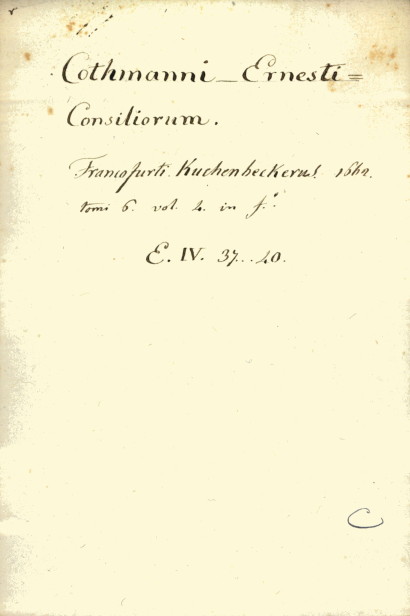 Cothmanni_Ernesti=
Consiliorum.
Francofurti. Kuchenbeckerus. 1662.
tomi 6. vol. 4. in f.º
E. IV. 37..40.
C